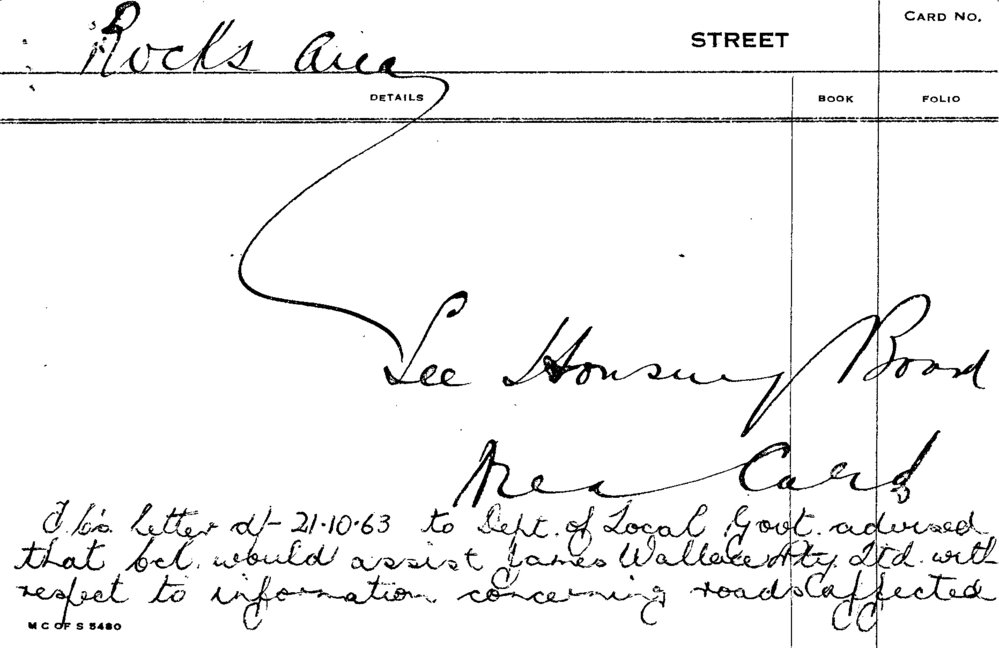 Rocks Area
STREET
CARD NO.
DETAILS
BOOK
FOLIO
See Housing Board
Area Card
letter d/- 21.10.63 to Dept. of Local Govt. advised
that ccl. would assist James Wallace Pty. Ltd. with
respect to information concerning roads affected
M C OF S 5480